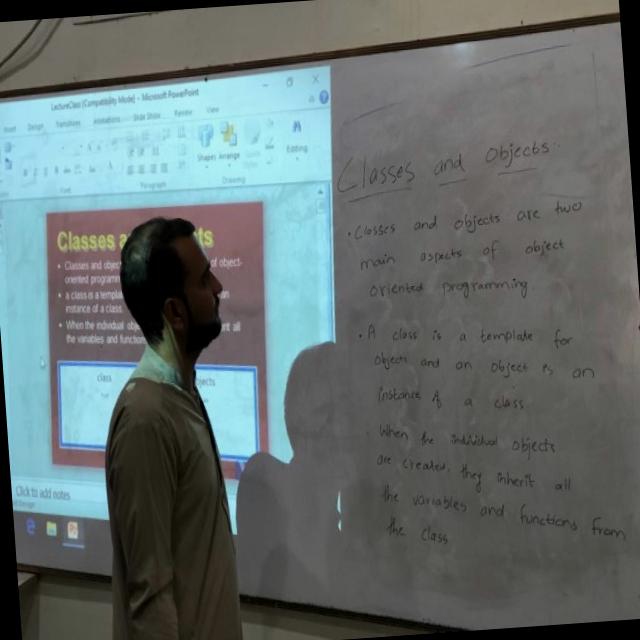 LectureClass (Compatibility Mode) - Microsoft PowerPoint
Insert Design Transitions Animations Slide Show Review View
Shapes Arrange Editing
Font Paragraph Drawing
Classes a
• Classes and obje of object-
oriented progra
• a class is a templa an
instance of a class
• When the individual obje all
the variables and function
class objects
Click to add notes
Classes and Objects:
• Classes and objects are two
main aspects of object
oriented programming
• A class is a template for
objects and an object is an
instance of a class
When the individual objects
are created, they inherit all
the variables and functions from
the class